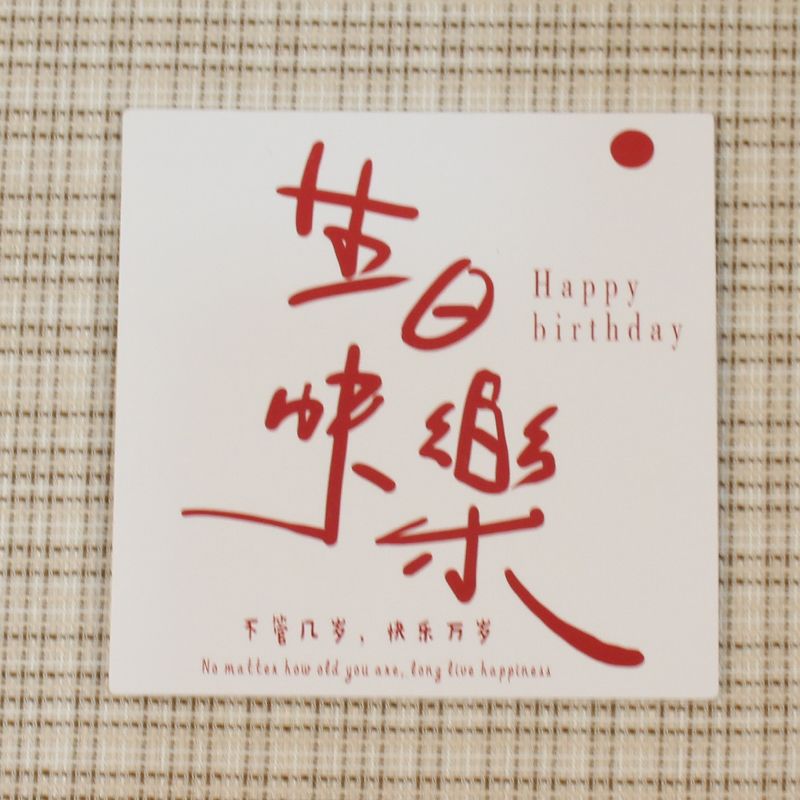 生日
快樂
Happy
birthday
不管几岁，快乐万岁
No matter how old you are, long live happiness